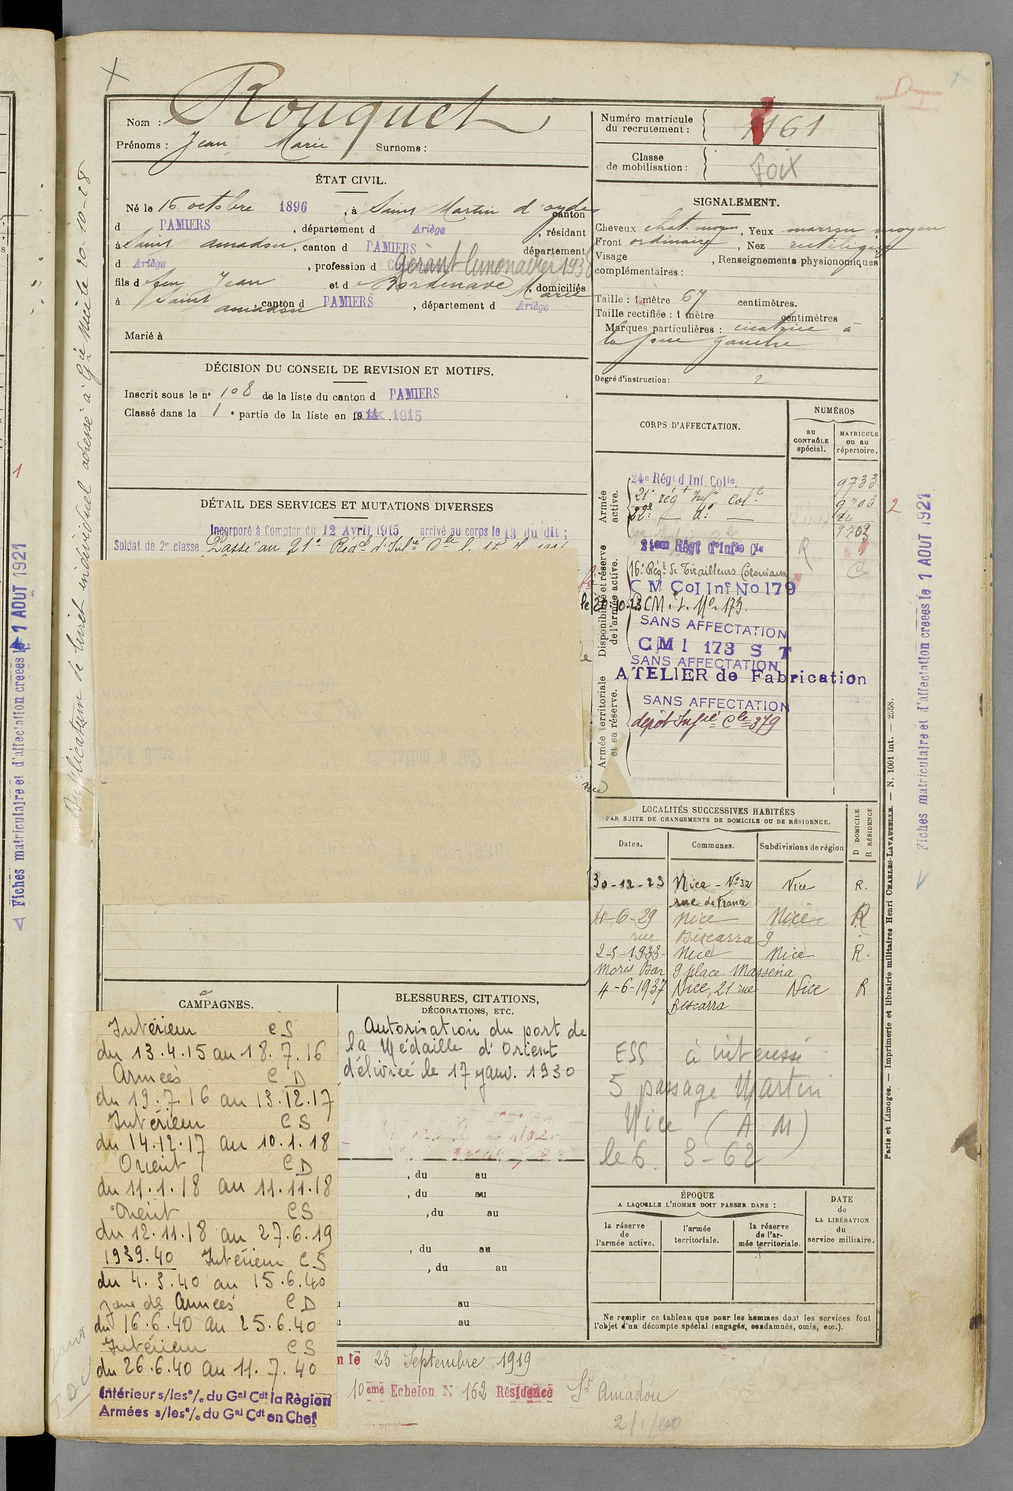 Rouquet
Nom :
Prénoms : Jean Marie Surnoms :
Numéro matricule
du recrutement : 1161
Classe
de mobilisation : FOIX
ÉTAT CIVIL.
Né le 16 octobre 1896, à Saint Martin d'oydes canton
d PAMIERS, département d Ariège, résidant
à Saint amadou, canton d PAMIERS département
d Ariège, profession d gérant limonadier 193
fils d feu Jean et d e Bordenave Marie, domiciliés
à Saint amadou canton d PAMIERS, département d Ariège
Marié à
DÉCISION DU CONSEIL DE REVISION ET MOTIFS.
Inscrit sous le n° 108 de la liste du canton d PAMIERS
Classé dans la 1 e partie de la liste en 1915
DÉTAIL DES SERVICES ET MUTATIONS DIVERSES
Incorporé à Compter du 12 Avril 1915 arrivé au corps le 13 du dit ;
Soldat de 2e classe Passé au 21e
SIGNALEMENT.
Cheveux chat. moyen, Yeux marron moyen
Front ordinaire, Nez rectiligne
Visage , Renseignements physionomiques
complémentaires :
Taille : 1 mètre 67 centimètres.
Taille rectifiée : 1 mètre centimètres
Marques particulières : cicatrice à
la joue gauche
Degré d'instruction : 2
CORPS D'AFFECTATION.
NUMÉROS
au
CONTRÔLE
spécial.
MATRICULE
ou au
répertoire.
Armée
active.
24e Rég d Inf Colle. 9733
21e régt Infie Colle 9203
Disponibilité et réserve
de l'armée active.
16e Régt de Tirailleurs Coloniaux
C M Col Inf No 179
le 20-10-28 CM. I. No. 173.
SANS AFFECTATION
C M I 173 S T
SANS AFFECTATION
ATELIER de Fabrication
Armée territoriale
et sa réserve.
SANS AFFECTATION
dépôt Infie Cle 379
LOCALITÉS SUCCESSIVES HABITÉES
PAR SUITE DE CHANGEMENTS DE DOMICILE OU DE RÉSIDENCE.
D DOMICILE
R RÉSIDENCE
Dates. Communes. Subdivisions de région
30-12-23 Nice - No 32 Nice R.
rue de France
11-6-29 Nice Nice R
rue Biscarra 9
2-5-1933 Nice Nice R.
Moris Bar 9 place Massena
4-6-1937 Nice, 21 rue Nice R
Biscarra
ESS à intéressé
5 passage Martin
Nice (A M)
le 6. 3-62
ÉPOQUE
A LAQUELLE L'HOMME DOIT PASSER DANS :
la réserve
de
l'armée active.
l'armée
territoriale.
la réserve
de l'ar-
mée territoriale.
DATE
de
LA LIBÉRATION
du
service militaire.
Ne remplir ce tableau que pour les hommes dont les services font
l'objet d'un décompte spécial (engagés, condamnés, omis, etc.).
CAMPAGNES.
Intérieur CS
du 13.4.15 au 18.7.16
Armées CD
du 19.7.16 au 13.12.17
Intérieur CS
du 14.12.17 au 10.1.18
Orient CD
du 11.1.18 au 11.11.18
Orient CS
du 12.11.18 au 27.6.19
1939.40 Intérieur CS
du 4.3.40 au 15.6.40
zone des Armées CD
du 16.6.40 au 25.6.40
Intérieur CS
du 26.6.40 au 11.7.40
Intérieur s/les °/. du Gal Cdt la Région
Armées s/les °/. du Gal Cdt en Chef
BLESSURES, CITATIONS,
DÉCORATIONS, ETC.
Autorisation du port de
la Médaille d'Orient
délivrée le 17 janv. 1930
, du au
, du au
, du au
, du au
, du au
au
au
le 23 Septembre 1919
10ème Echelon N 162 Résidence St Amadou
2/1/20
Duplicatum de livret individuel adressé à Gie Nice le 20-10-28
Fiches matriculaire et d'affectation créées le 1 AOUT 1921
Fiches matriculaire et d'affectation créées le 1 AOUT 1921
Paris et Limoges. — Imprimerie et librairie militaires Henri CHARLES-LAVAUZELLE. — N. 1001 int. — 2358.